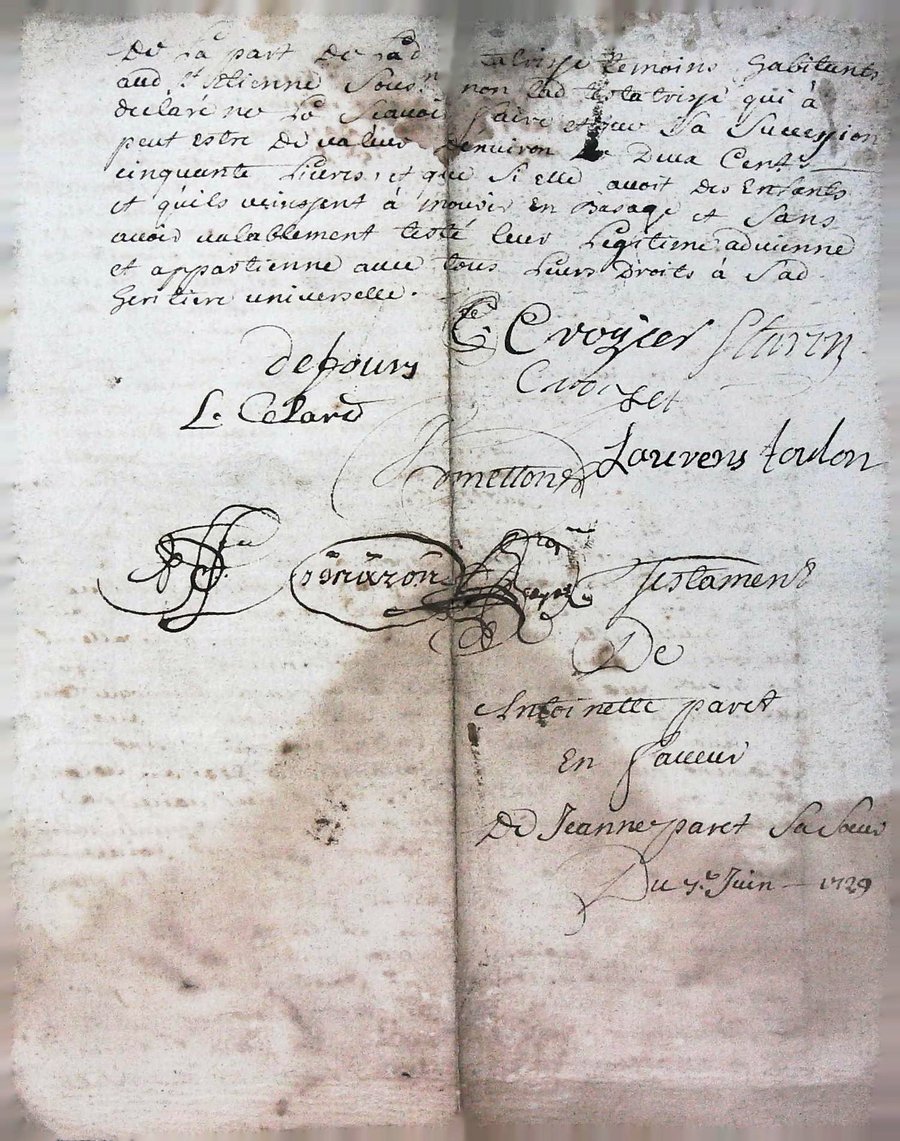 De La part De Lad
tatrisse temoins habitants
aud St Etienne Sous.n non Lad testatrisse qui à
declaré ne Le Scavoir faire et que Sa Succession
peut estre De valeur denviron De Deux Cent
cinquante Livres, et que Si elle avoit Des Enfants
et qu'ils veinssent à mourir En Basage et Sans
avoir valablement testé leur Legitime advienne
et appartienne avec tous Leurs Droits à Sad
heritiere universelle.
C. Croyier Staron
depours
L. Celard
Laurens toulon
Testament
De
Antoinette paret
En faveur
De Jeanne paret Sa Sœur
Du 7.e Juin 1729